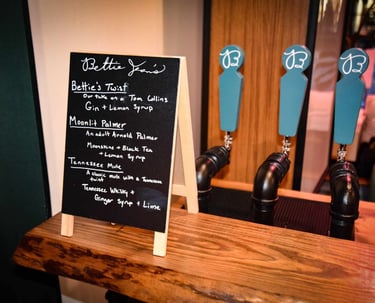 Bettie Jean's
Bettie's Twist
Our take on a Tom Collins
Gin + Lemon Syrup
Moonlit Palmer
An adult Arnold Palmer
Moonshine + Black Tea
+ Lemon Syrup
Tennessee Mule
A classic mule with a Tennessee
twist
Tennessee Whiskey +
Ginger Syrup + Lime